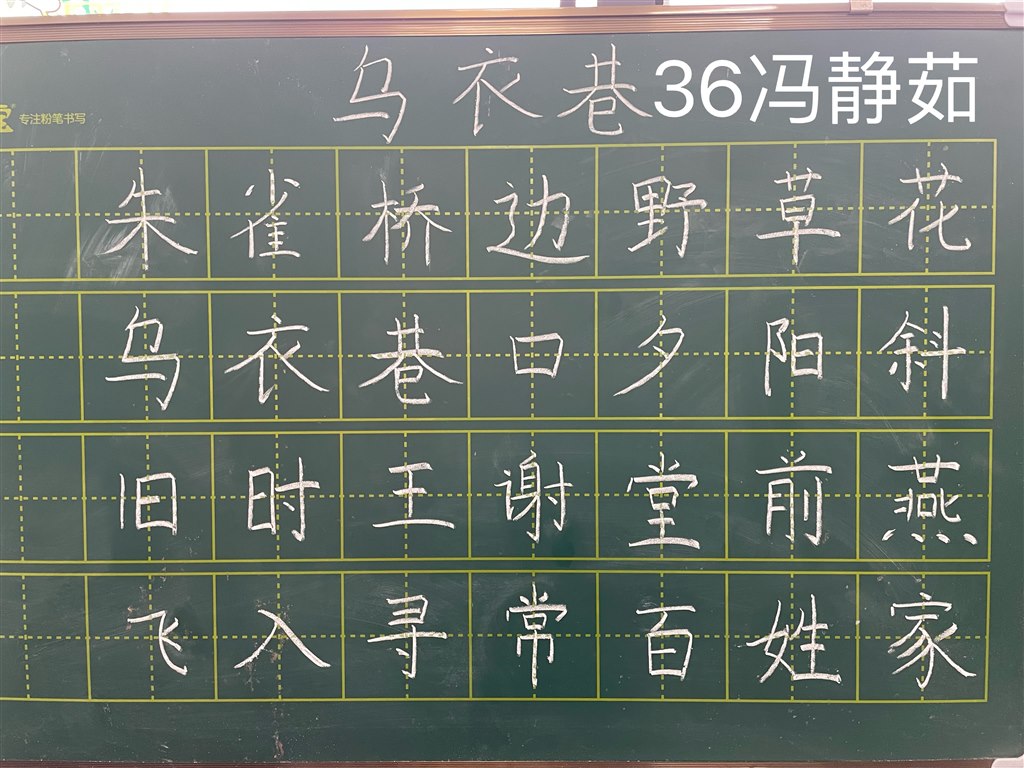 乌衣巷36冯静茹
专注粉笔书写
朱雀桥边野草花
乌衣巷口夕阳斜
旧时王谢堂前燕
飞入寻常百姓家